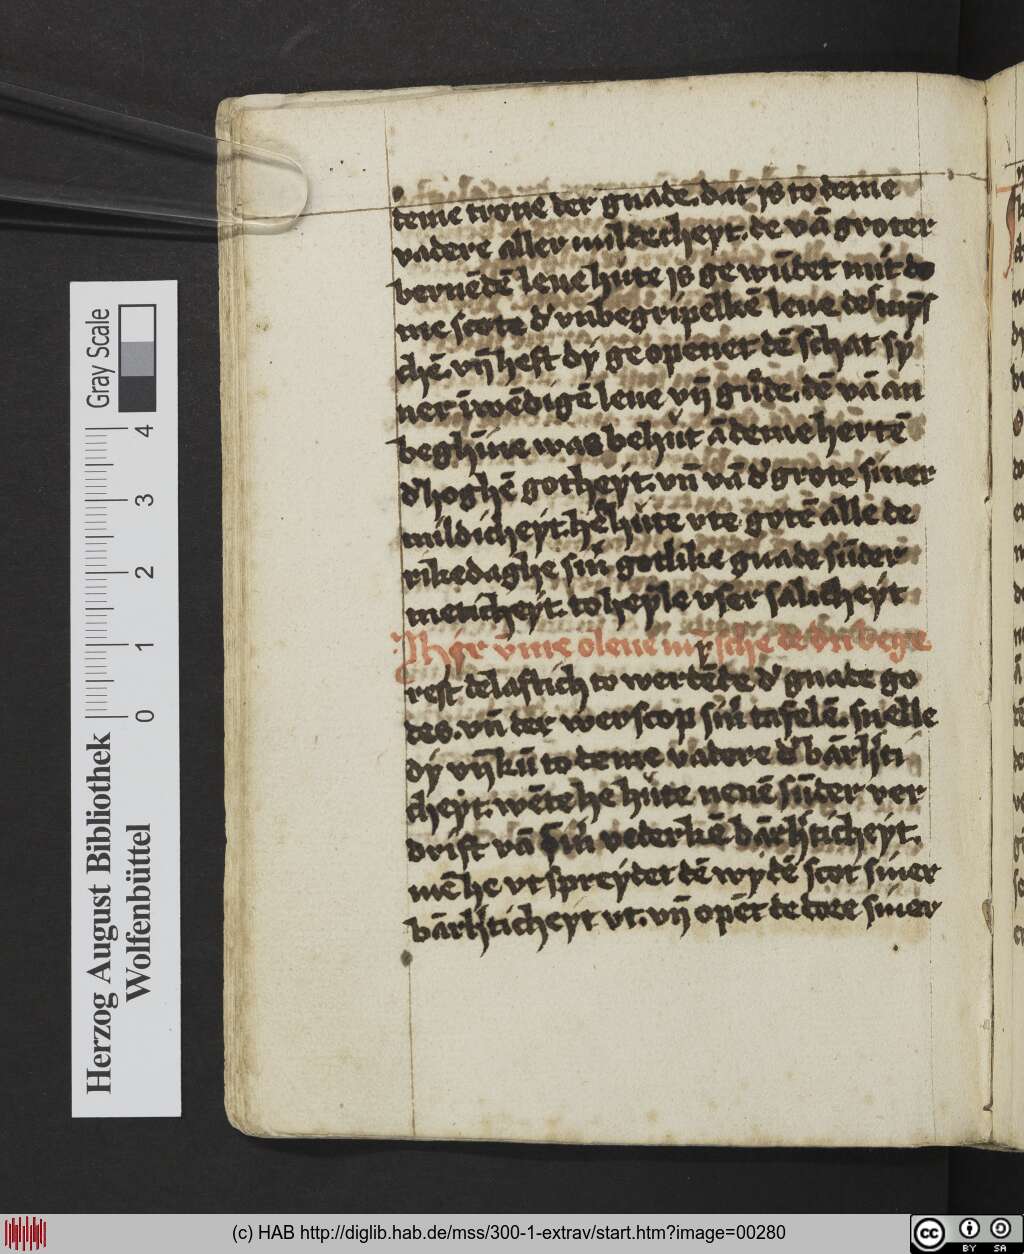 deme trone der gnade. dat is to deme
vadere aller mildicheyt. de vā groter
bernēdē leue hute is ge wūdet mit de
me scote d' vnbegripelkē leue des mīs
chē. vn̄ heft dy ge openet dē schat sy
ner īwēdigē leue vn̄ gnade. dē vā an
beghīne was behut ā deme hertē
d' hoghē gotheyt. vn̄ vā d' grote siner
mildicheyt. he hute vte gotē alle de
rikedaghe sin' gotlike gnade sūder
meticheyt. to heyle vser salicheyt
Hijr vme o leue mīsche de du bege
rest dēlaftich to werdēde d' gnade go
des. vn̄ der werscop sin' tafelē. snelle
dy vn̄ kū to deme vadere d' bārh'ti
cheyt. wēte he hute nenē sūder ver
drift vā sin' vederkē bārh'ticheyt.
mē he vt spreydet dē wydē scot siner
bārh'ticheyt vt. vn̄ opēt de dore siner
Herzog August Bibliothek
Wolfenbüttel
0 1 2 3 4
Gray Scale
(c) HAB http://diglib.hab.de/mss/300-1-extrav/start.htm?image=00280
cc BY SA